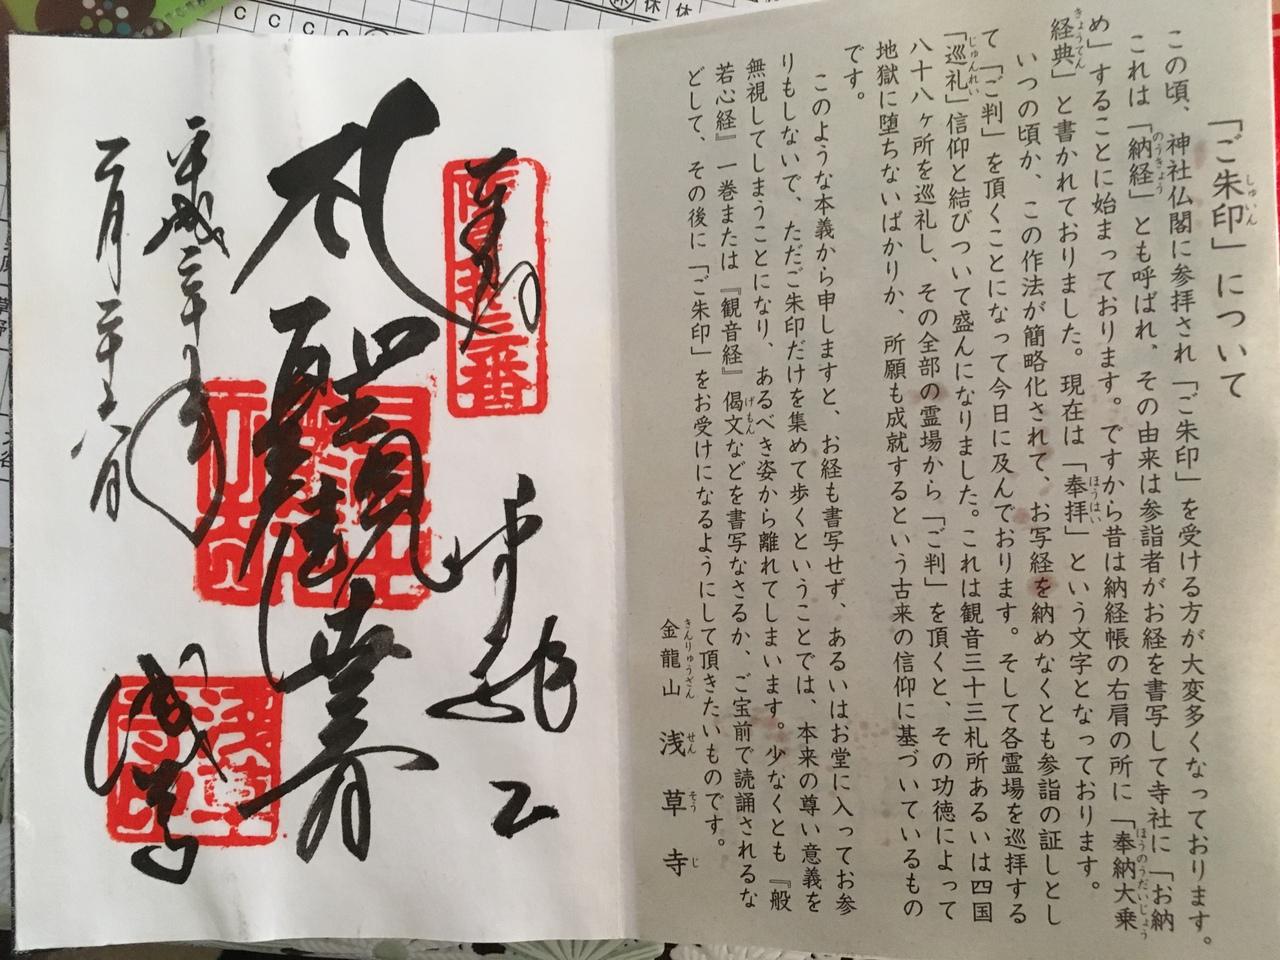 「ご朱印」について
この頃、神社仏閣に参拝され「ご朱印」を受ける方が大変多くなっております。
これは「納経」とも呼ばれ、その由来は参詣者がお経を書写して寺社に「お納
め」することに始まっております。ですから昔は納経帳の右肩の所に「奉納大乗
経典」と書かれておりました。現在は「奉拝」という文字となっております。
いつの頃か、この作法が簡略化されて、お写経を納めなくとも参詣の証しとし
て「ご判」を頂くことになって今日に及んでおります。そして各霊場を巡拝する
「巡礼」信仰と結びついて盛んになりました。これは観音三十三札所あるいは四国
八十八ヶ所を巡礼し、その全部の霊場から「ご判」を頂くと、その功徳によって
地獄に堕ちないばかりか、所願も成就するという古来の信仰に基づいているもの
です。
このような本義から申しますと、お経も書写せず、あるいはお堂に入ってお参
りもしないで、ただご朱印だけを集めて歩くということでは、本来の尊い意義を
無視してしまうことになり、あるべき姿から離れてしまいます。少なくとも『般
若心経』一巻または『観音経』偈文などを書写なさるか、ご宝前で読誦されるな
どして、その後に「ご朱印」をお受けになるようにして頂きたいものです。
金龍山 浅草寺
奉拝
聖観世音
浅草寺